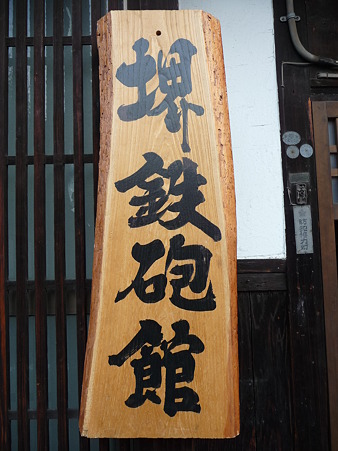 堺鉄砲館